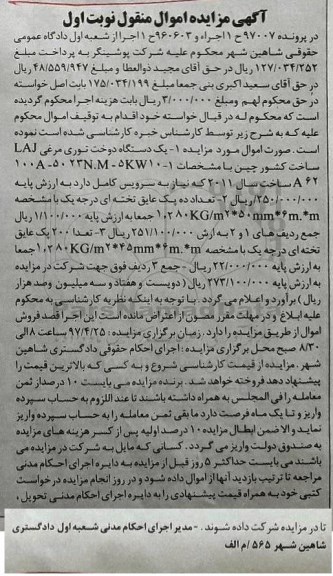 آگهی مزایده اموال منقول نوبت اول
در پرونده ۹۷۰۰۷ح ۱ اجراء و ۹۶۰۶۰۳ح ۱ اجرا از شعبه اول دادگاه عمومی
حقوقی شاهین شهر محکوم علیه شرکت پوشینگر به پرداخت مبلغ
۱۲۷/۰۳۴/۲۵۲ ریال در حق آقای مجید ذوالعطا و مبلغ ۴۸/۵۵۹/۹۴۷ ریال
در حق آقای سعید اکبری بنی جمعا مبلغ ۱۷۵/۰۳۴/۱۹۹ بابت اصل خواسته
در حق محکوم لهم و مبلغ ۳/۰۰۰/۰۰۰ ریال بابت هزینه اجرا محکوم گردیده
است که محکوم له در قبال خواسته خود اقدام به توقیف اموال محکوم
علیه که به شرح زیر توسط کارشناس خبره کارشناسی شده است نموده
است. صورت اموال مورد مزایده ۱- یک دستگاه دوخت توری مرغی LAJ
ساخت کشور چین با مشخصات ۱-۱۰۰A -۵۰۲۳N.M -۵KW۱۰
A۶۲ ساخت سال ۲۰۱۱ که نیاز به سرویس کامل دارد به ارزش پایه
۲۵۰/۰۰۰/۰۰۰ ریال ۲- تعداد ده پک عایق تخته ای درجه یک با مشخصه
۱۰۲۸۰KG/m۲*۵۰mm*۶m.*m جمعا به ارزش پایه ۱/۱۰۰/۰۰۰ ریال
جمع ردیف های ۱ و ۲ به ارزش ۲۵۱/۱۰۰/۰۰۰ ریال ۳- تعدا ۲۰۰ پک عایق
تخته ای درجه یک با مشخصه ۱۰۲۸۰KG/m۲*۴۵mm*۶m.*m جمعا
به ارزش پایه ۲۲/۰۰۰/۰۰۰ ریال - جمع ۳ ردیف فوق جهت شرکت در مزایده
به ارزش پایه ۲۷۳/۱۰۰/۰۰۰ ریال (دویست و هفتاد و سه میلیون و صد هزار
ریال) برآورد و اعلام می گردد. با توجه به اینکه نظریه کارشناسی به محکوم
علیه ابلاغ و در مهلت مقرر مصون از اعتراض مانده است این اجرا قصد فروش
اموال از طریق مزایده را دارد. زمان برگزاری مزایده: ۹۷/۴/۲۵ ساعت ۸ الی
۸/۳۰ صبح محل برگزاری مزایده: اجرای احکام حقوقی دادگستری شاهین
شهر. مزایده از قیمت کارشناسی شروع و به کسی که بالاترین قیمت را
پیشنهاد دهد فروخته خواهد شد. برنده مزایده می بایست ۱۰ درصد از ثمن
معامله را فی المجلس به همراه داشته باشند تا عند اللزوم به حساب سپرده
واریز و تا یک ماه فرصت دارد مابقی ثمن معامله را به حساب سپرده واریز
نماید و الا ضمن ابطال مزایده ۱۰ درصد اولیه پس از کسر هزینه های مزایده
به صندوق دولت واریز می گردد. کسانی که مایل به شرکت در مزایده می
باشند می بایست حداکثر ۵ روز قبل از مزایده به دایره اجرای احکام مدنی
مراجعه تا ترتیب بازدید آنها از اموال داده شود و در روز انجام مزایده درخواست
کتبی خود به همراه قیمت پیشنهادی را به دایره اجرای احکام مدنی تحویل،
تا در مزایده شرکت داده شوند. -مدیر اجرای احکام مدنی شعبه اول دادگستری
شاهین شهر ۵۶۵ /م الف